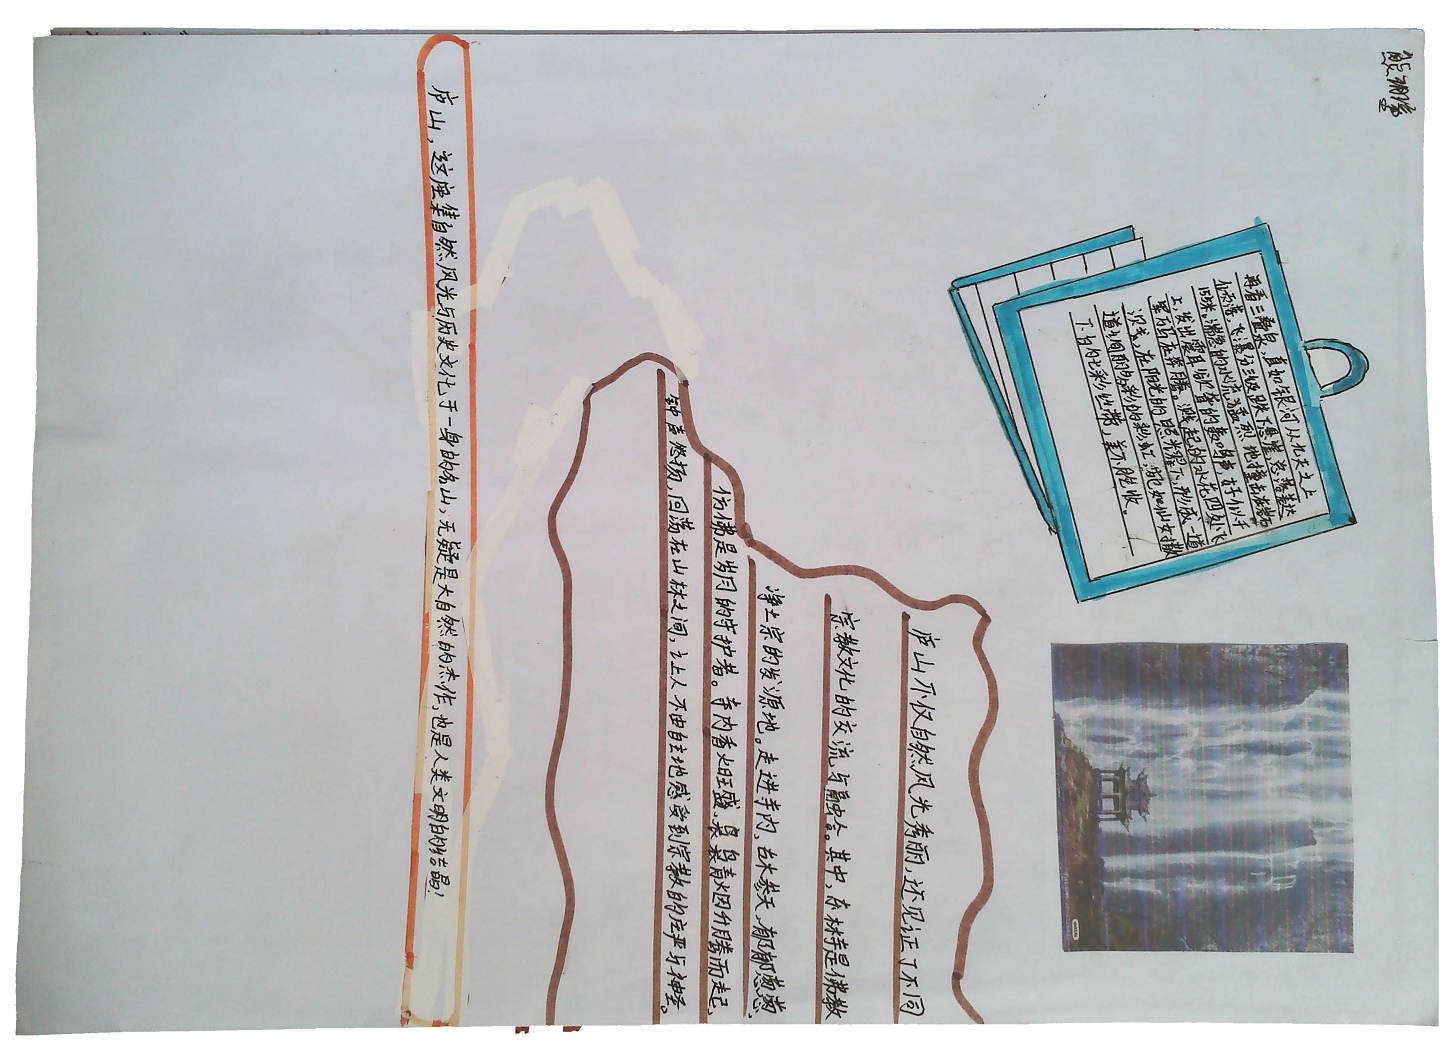 熊
再看三叠泉，真如银河从九天之上
倾落，飞瀑分三级跌下悬崖，总落差达
155米。湍急的水流猛烈地撞击在岩石
上，发出震耳欲聋的轰鸣声，好似千
军万马在奔腾。溅起的水花四处飞
溅，在阳光的照耀下，形成一道
道绚丽多彩的彩虹，宛如仙女撒
下的七彩丝带，美不胜收。
庐山不仅自然风光秀丽，还见证了不同
宗教文化的交流与融合。其中，东林寺是佛教
净土宗的发源地。走进寺内，古木参天，郁郁葱葱，
仿佛是岁月的守护者。寺内香火旺盛，袅袅青烟升腾而起，
钟声悠扬，回荡在山林之间，让人不由自主地感受到宗教的庄严与神圣。
庐山，这座集自然风光与历史文化于一身的名山，无疑是大自然的杰作，也是人类文明的结晶！